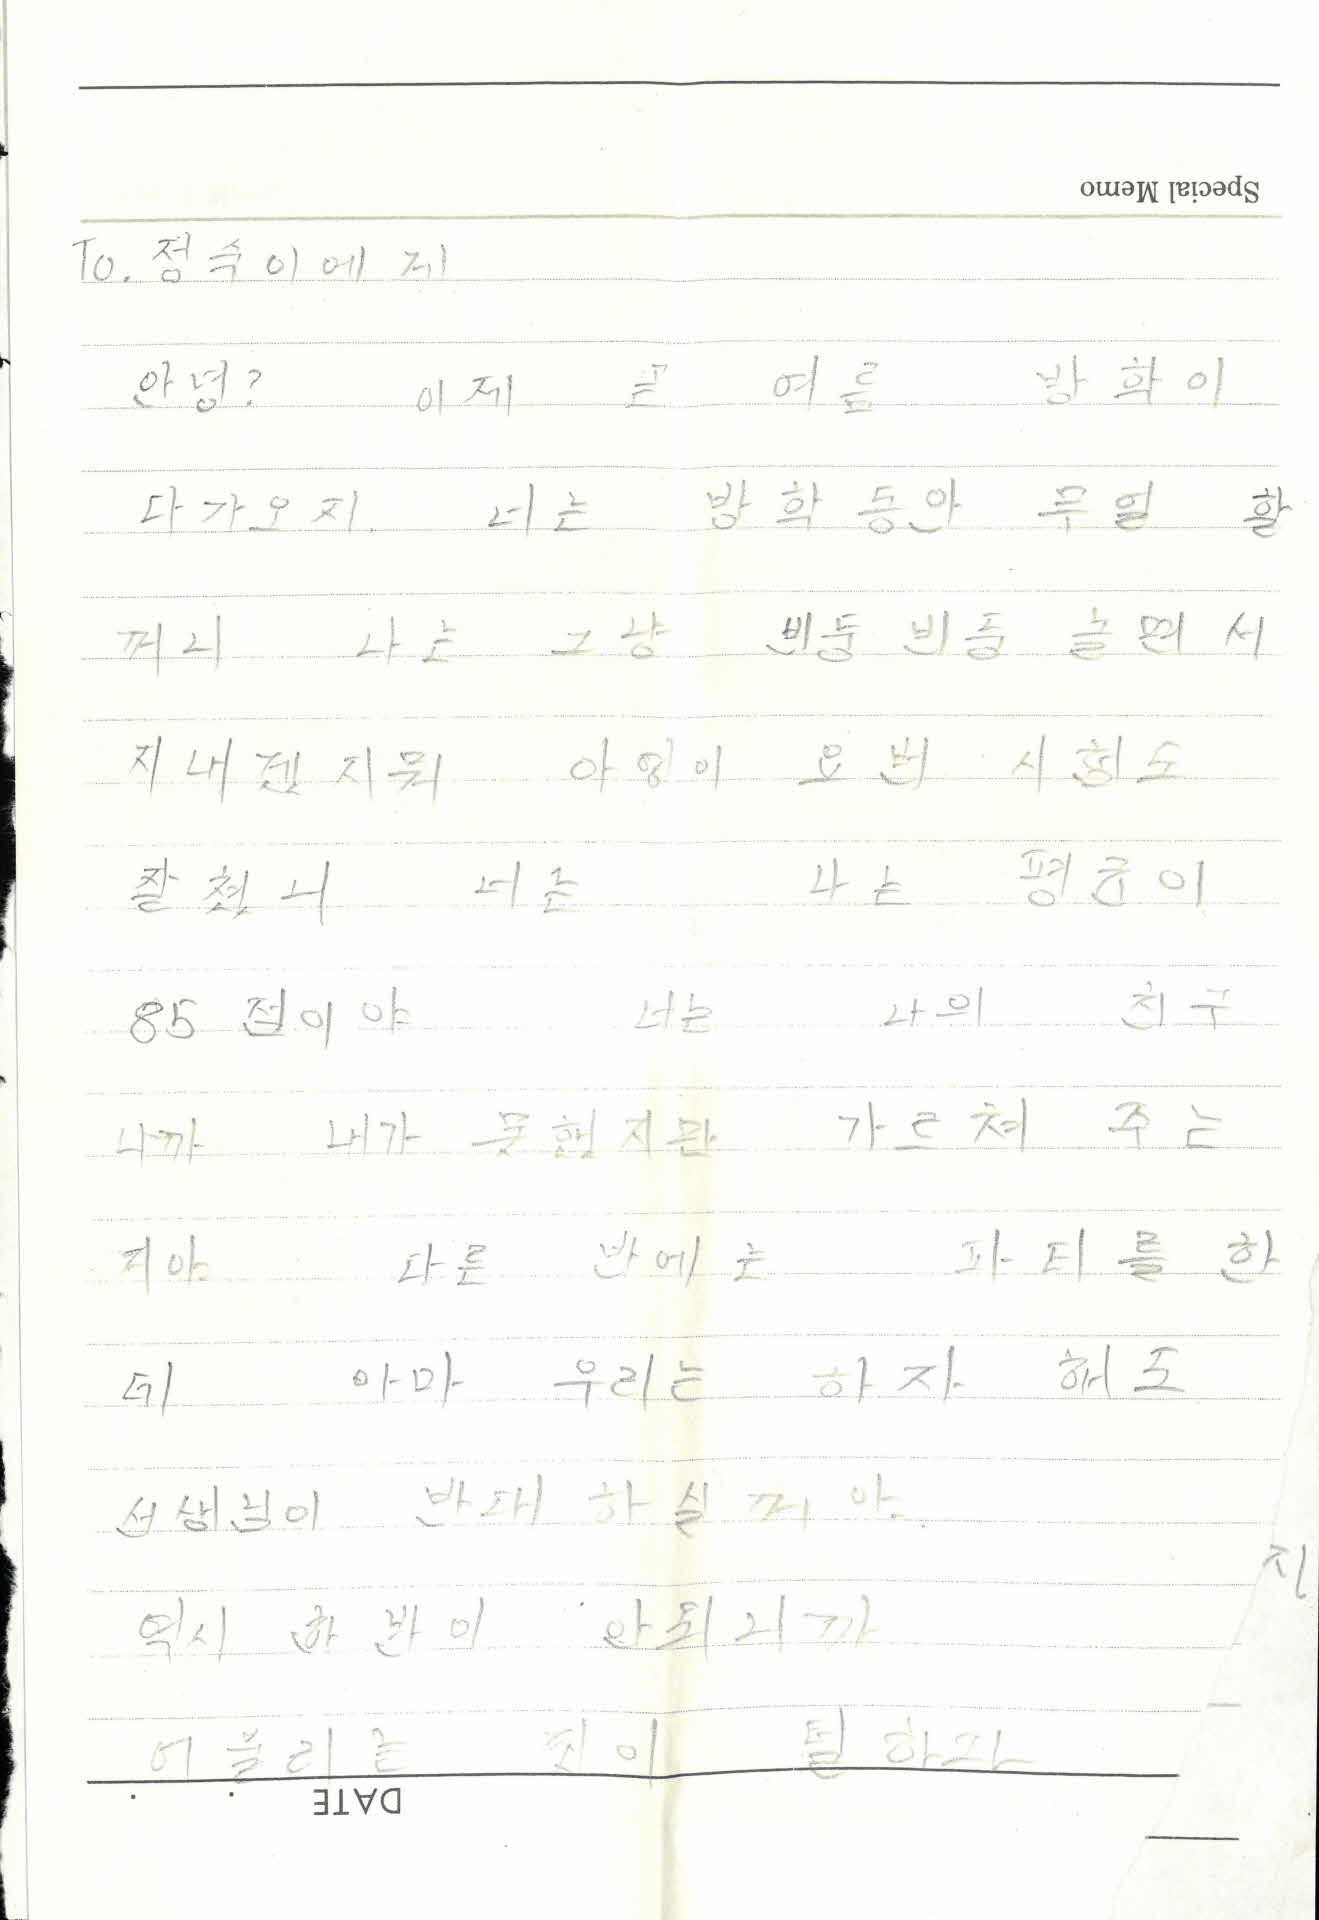 Special Memo
To. 정숙이에게
안녕? 이제 곧 여름 방학이
다가오지. 너는 방학동안 무얼 할
꺼니 나는 그냥 빈둥빈둥 놀면서
지내겐지뭐 아영이 요번 시험도
잘쳤니 너는 나는 평균이
85점이야 너는 나의 친구
니까 내가 못했지만 가르쳐 주는
거야. 다른 반에는 파티를 한
데 아마 우리는 하자 해도
선생님이 반대 하실꺼야.
역시 한반이 안되니까
어울리는 것이 털하다
지
DATE . .